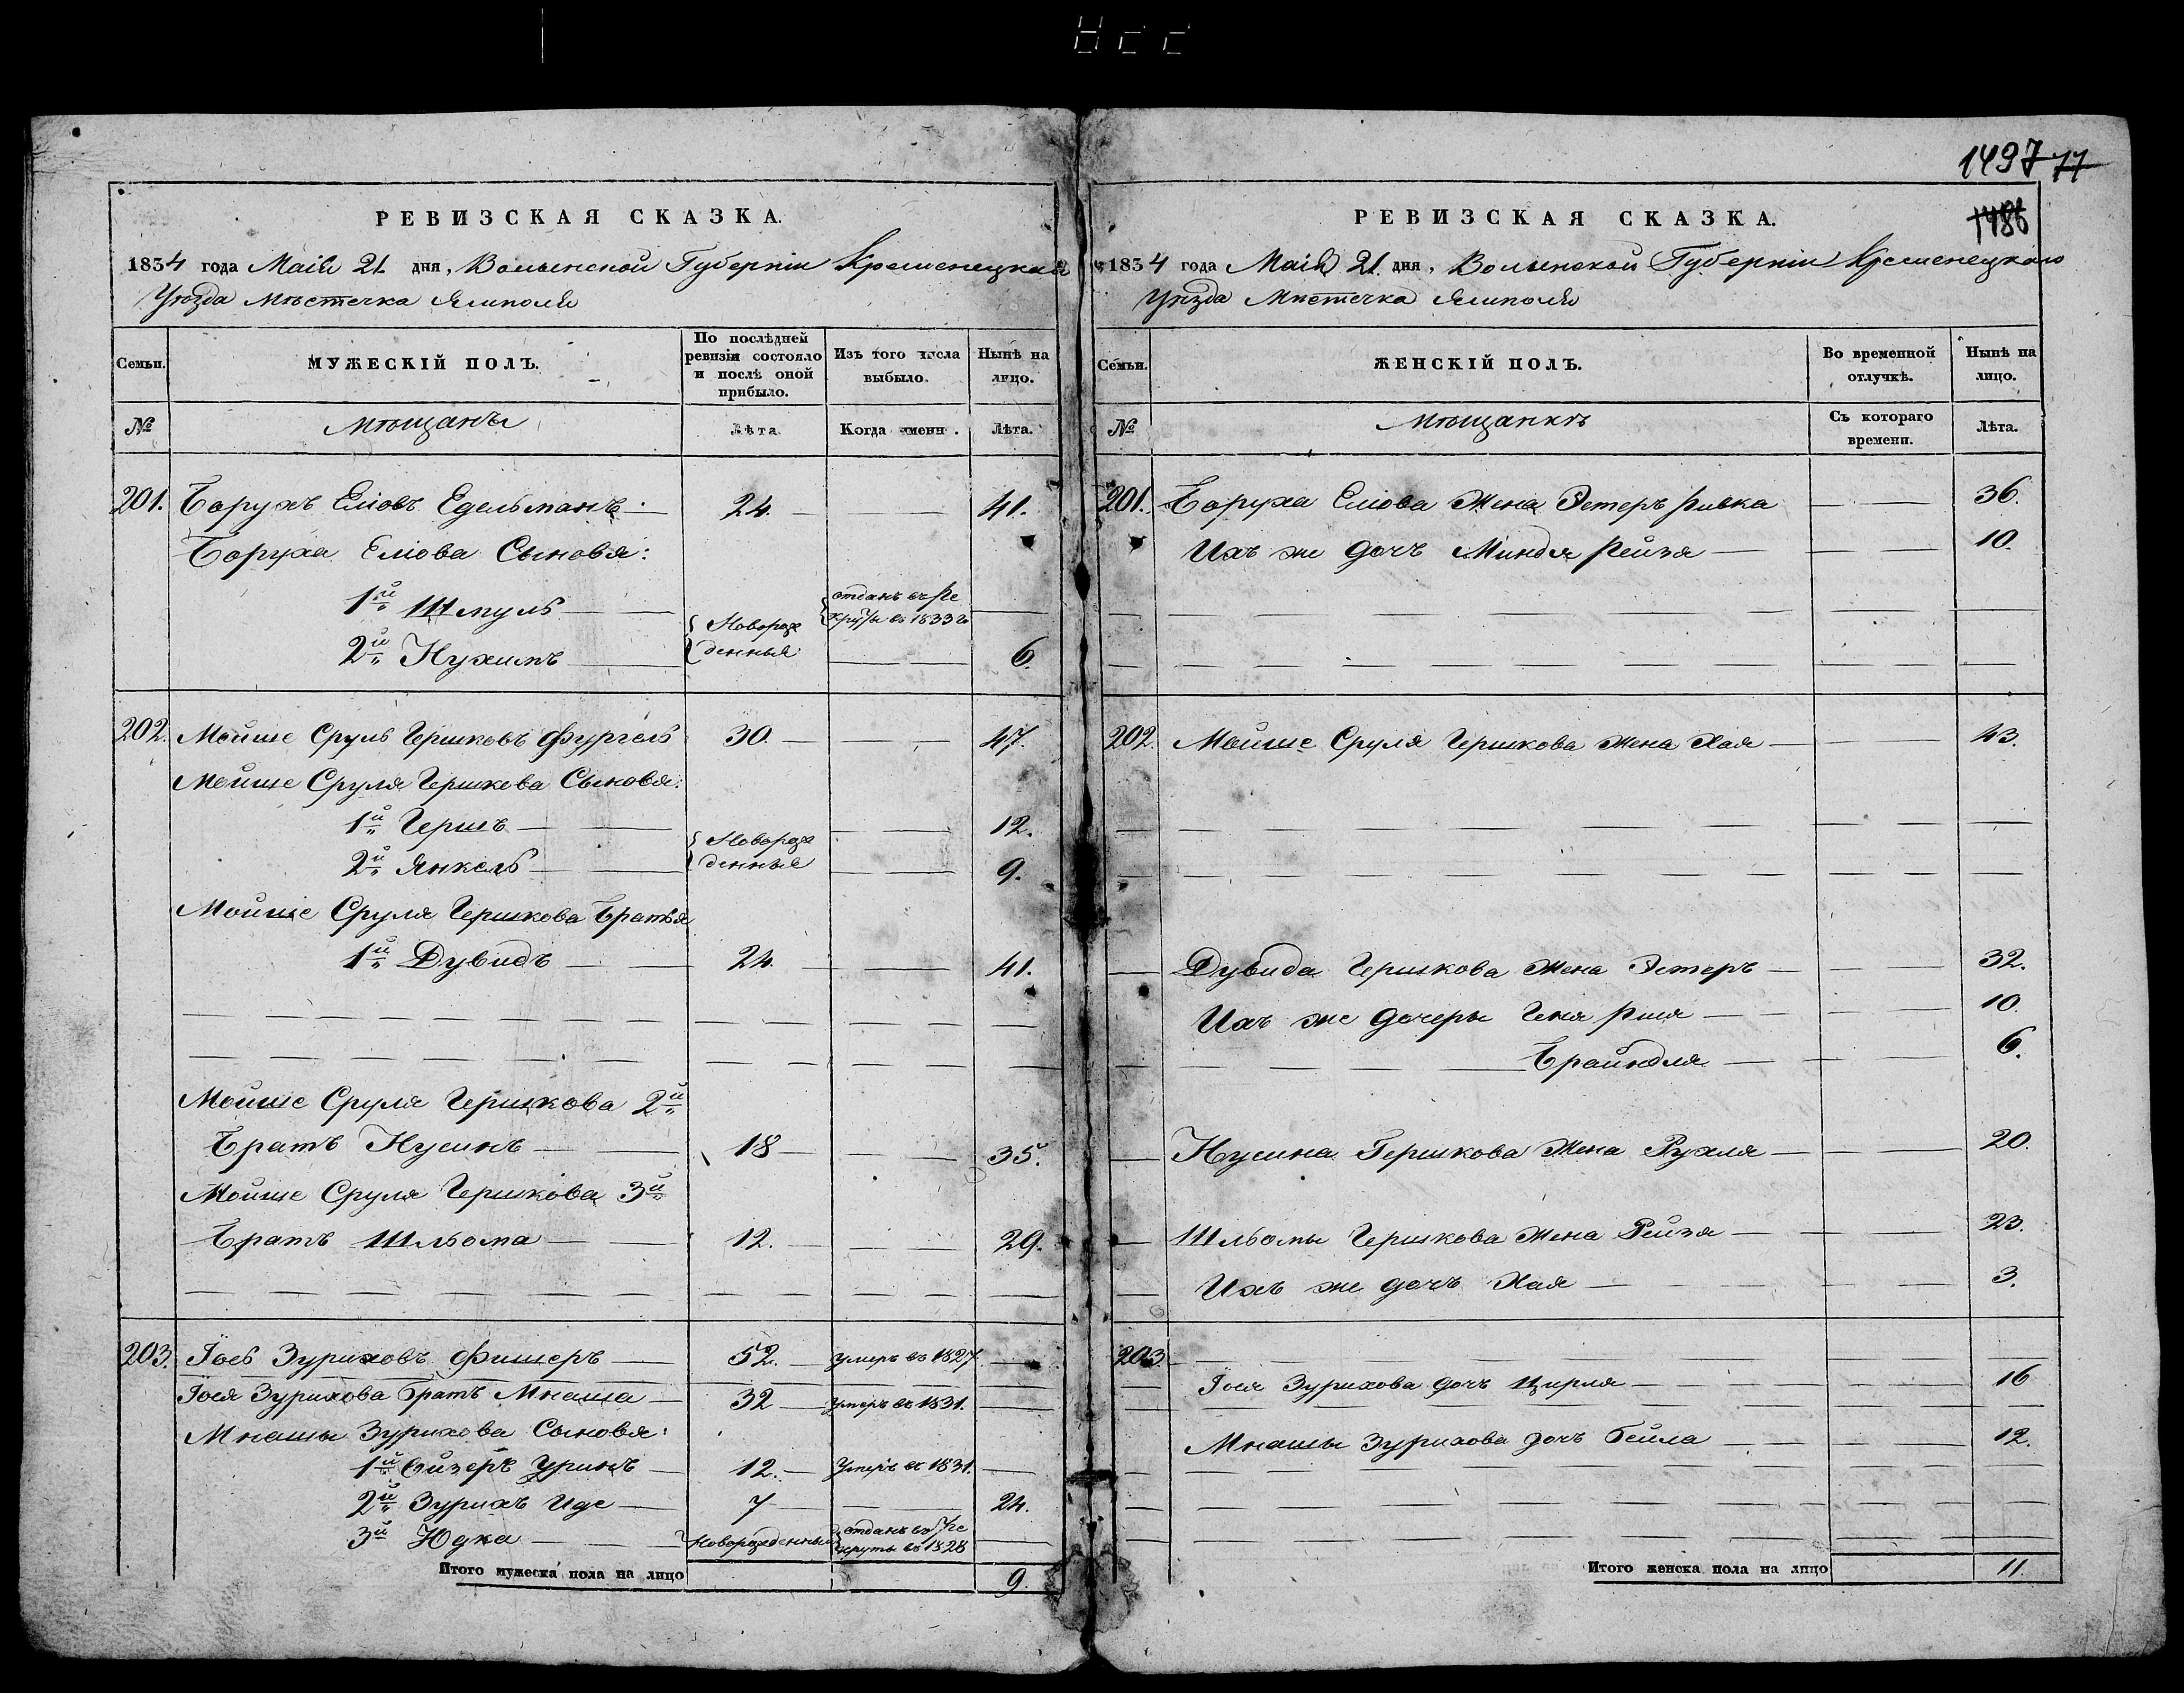 1497 77
1486
РЕВИЗСКАЯ СКАЗКА.
1834 года Маія 21 дня, Волынской Губерніи Кременецкаго
Уѣзда Мѣстечка Ямполя
Семьи.
МУЖЕСКІЙ ПОЛЪ.
По послѣдней ревизіи состояло и послѣ оной прибыло.
Изъ того числа выбыло.
Нынѣ на лицо.
№
мѣщанъ
Лѣта
Когда именно.
Лѣта.
201. Борухъ Еліовъ Едельманъ 24. 41.
Боруха Еліова Сыновья:
1й Шмуль отданъ въ Рекруты въ 1833 г
2й Нухимъ Новорожденныя 6.
202. Мойше Сруль Гершковъ Фургель 30. 47.
Мойше Сруля Гершкова Сыновья:
1й Гершъ 12.
2й Янкель Новорожденныя 9.
Мойше Сруля Гершкова Братья
1й Дувидъ 24. 41.
Мойше Сруля Гершкова 2й
Братъ Нусинъ 18 35.
Мойше Сруля Гершкова 3й
Братъ Шльома 12. 29.
203. Іось Зуриховъ Фишеръ 52. умеръ въ 1827
Іося Зурихова братъ Мнаша 32 умеръ въ 1831.
Мнашы Зурихова Сыновья:
1й Ойзеръ Уринъ 12. Умеръ въ 1831.
2й Зурихъ Иде 7 24.
3й Юдка Новорожденный отданъ въ Рекруты въ 1828
Итого мужеска пола на лицо 9.
РЕВИЗСКАЯ СКАЗКА.
1834 года Маія 21 дня, Волынской Губерніи Кременецкаго
Уѣзда Мѣстечка Ямполя
Семьи.
ЖЕНСКІЙ ПОЛЪ.
Во временной отлучкѣ.
Нынѣ на лицо.
№
мѣщанкѣ
Съ котораго времени.
Лѣта.
201. Боруха Еліова Жена Эстеръ Ривка 36.
Ихъ же дочъ Миндя Рейзя 10.
202. Мойше Сруля Гершкова жена Хая 43.
Дувида Гершкова Жена Эстеръ 32.
Ихъ же дочеры Геня 10.
Брайндля 6.
Нусина Гершкова Жена Рухля 20.
Шльомы Гершкова Жена Рейзя 23.
Ихъ же дочъ Хая 3.
203
Іося Зурихова дочъ Цирля 16
Мнашы Зурихова дочъ Бейла 12.
Итого женска пола на лицо 11.